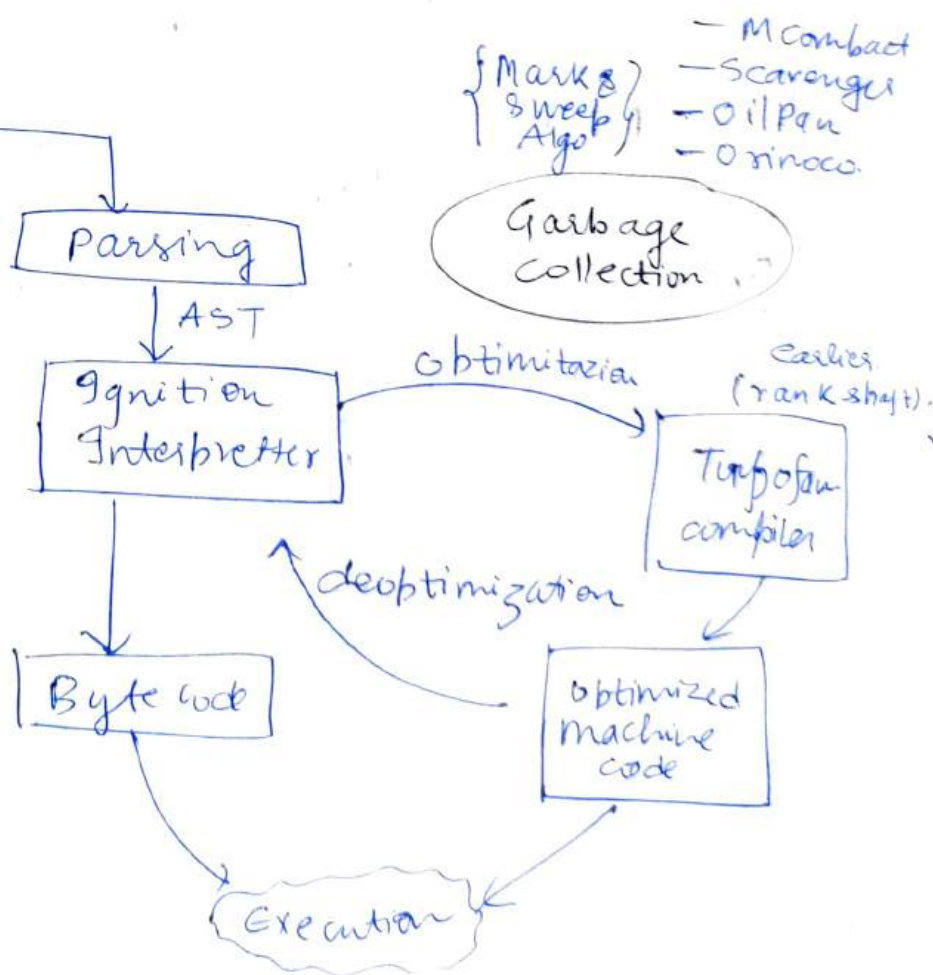 - M Combact
{ Mark &
- Scavenger
Sweep
- Oil Pan
Algo }
- Orinoco.
Garbage
collection
Parsing
AST
Ignition
Interpretter
obtimitazion
earlier
(rankshaft).
Turbofan
compiler
deoptimization
Byte code
optimized
machine
code
Execution